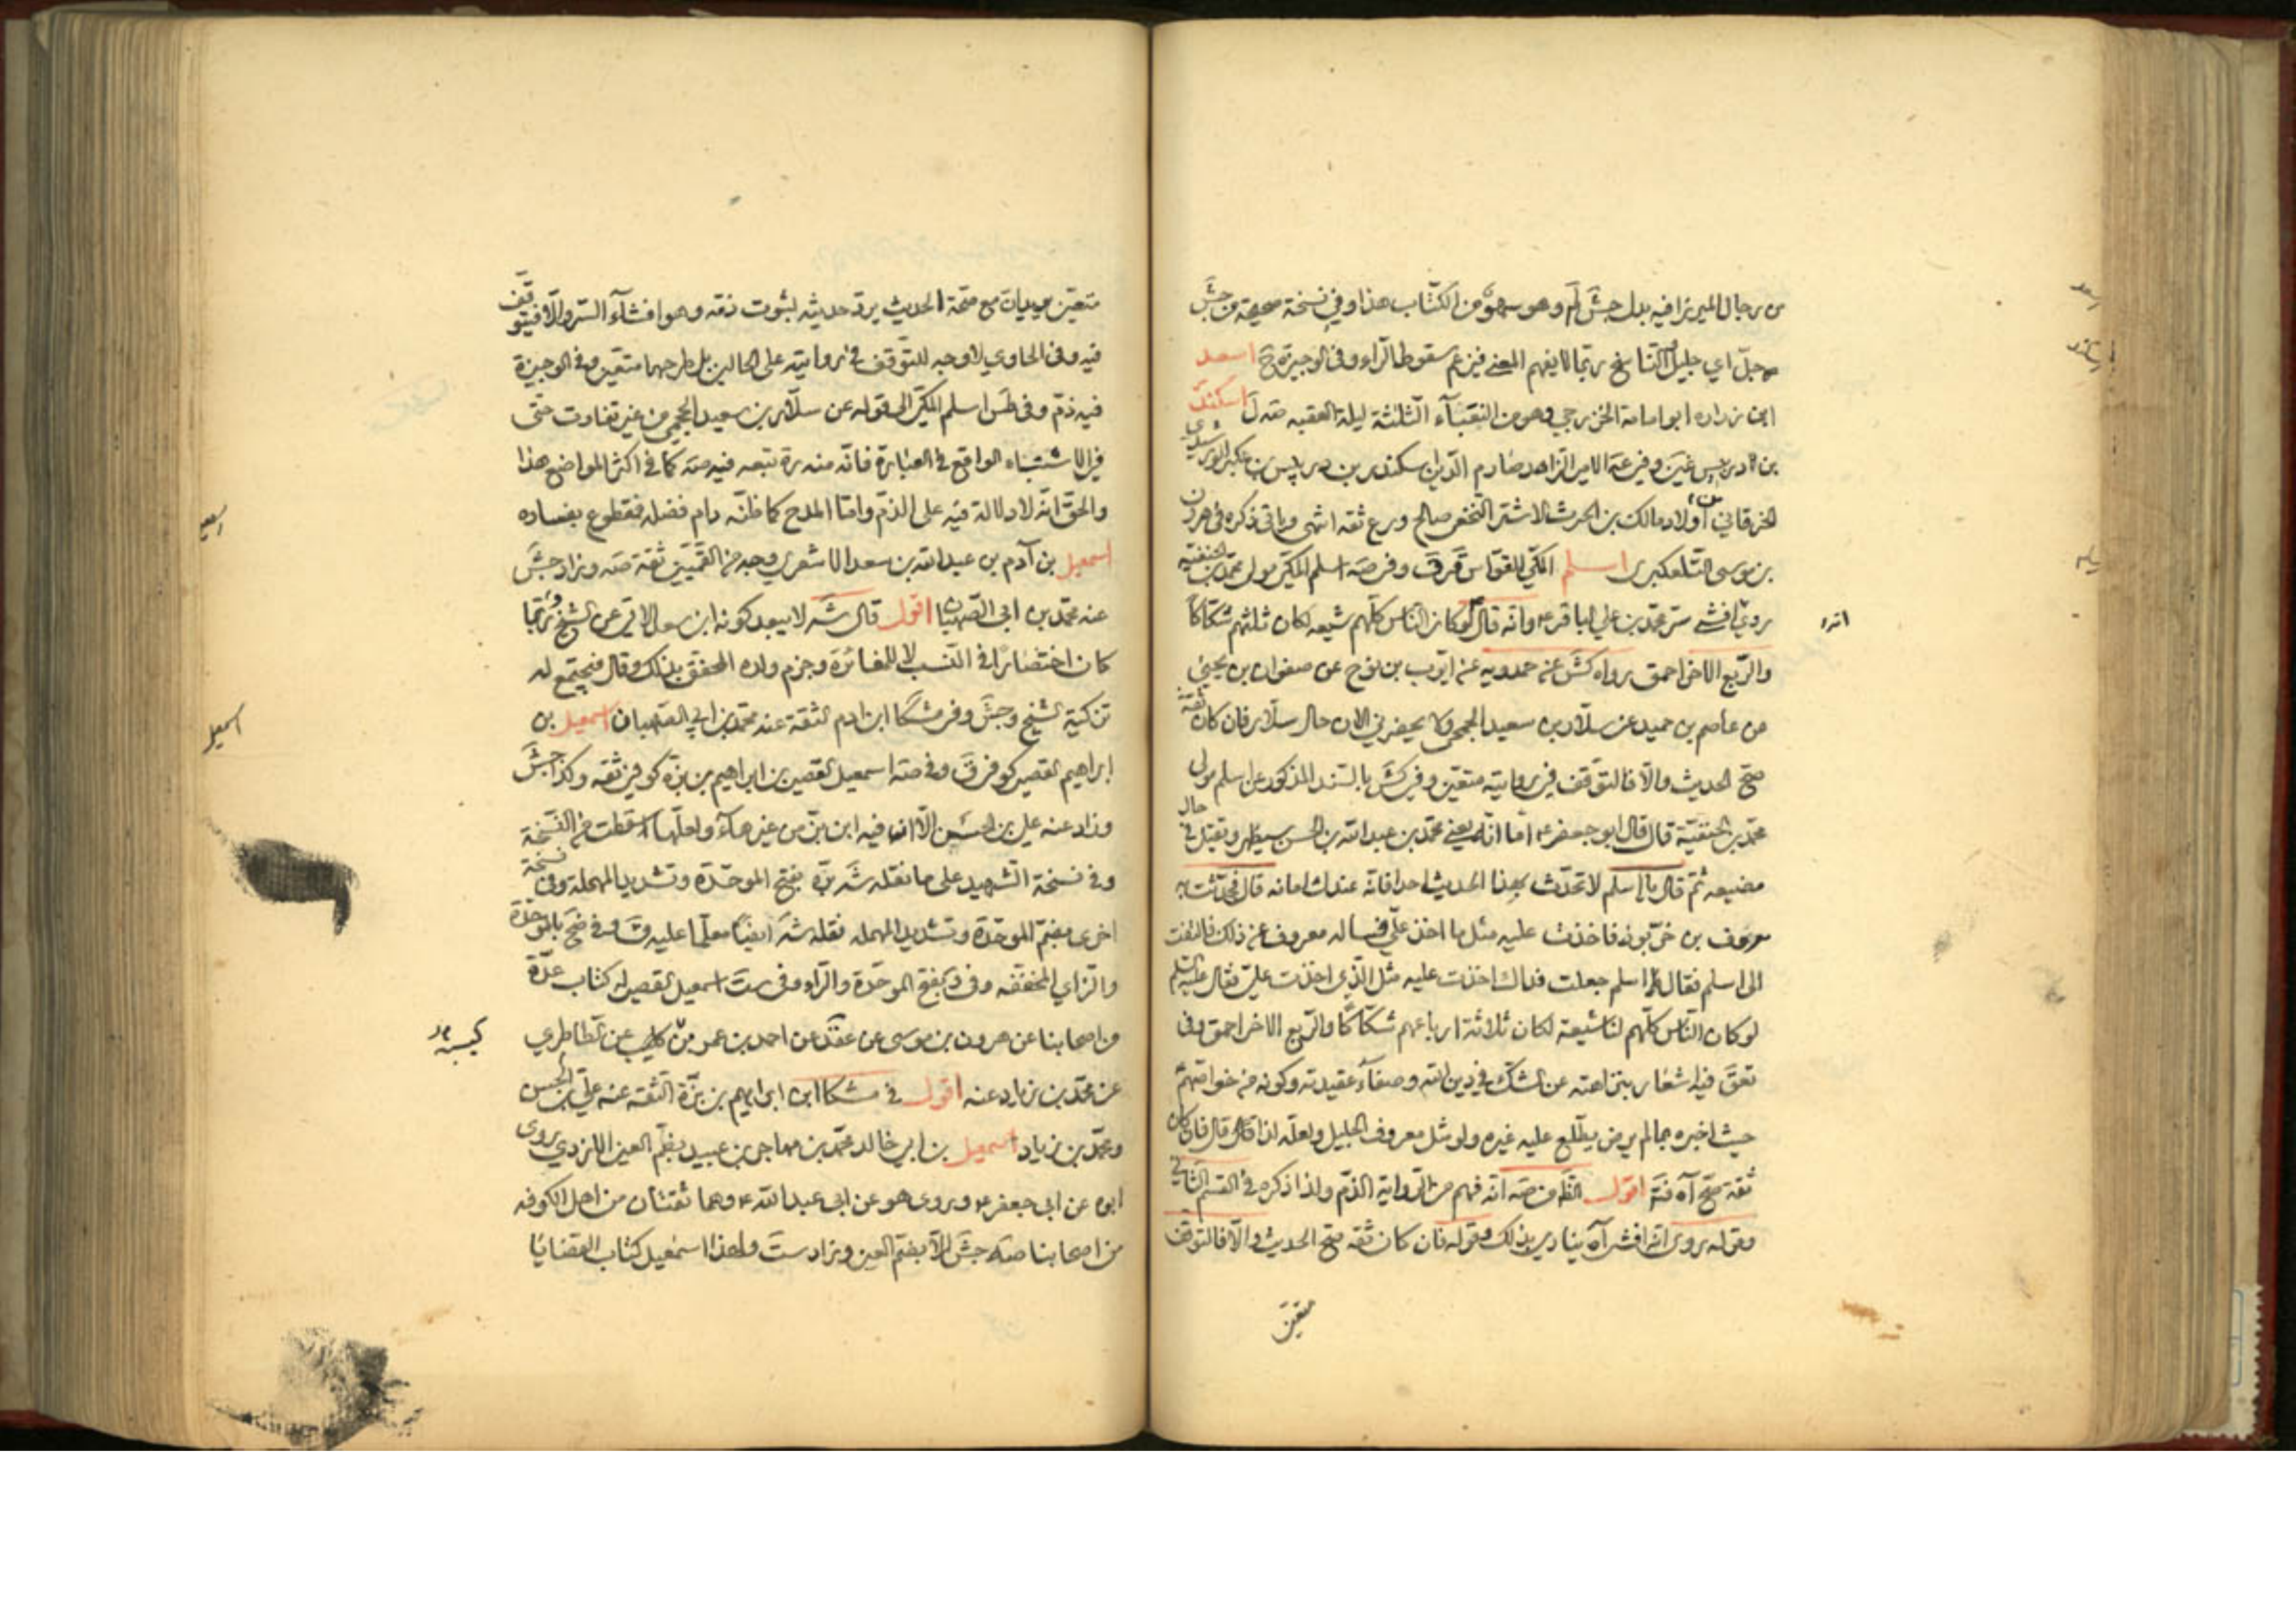 من رجال الميرزا فيه بدل جش لم وهو سهو من الكتاب هذا وفي نسخة صحيحة من جش
جل اي جليل الناسخ ربما لا يفهم المعنى فيزعم سقوط الراء وفي الوجيزة ح اسعد
ابن زراره ابو امامة الخزرجي وهو من النقباء الثلثة ليلة العقبه صه ل اسكندر
بن دربيس غين وفي عه الامير الزاهد صارم الدين اسكندر بن دربيس بن عكبر الورشيدي
الخرقاني من اولاد مالك بن الحرث الاشتر النخعي صالح ورع ثقه انتهى وياتي ذكره في هرون
بن موسى التلعكبري اسلم المكي القواس قر ق وفي صه اسلم المكي مولى محمد بن الحنفية
روي افشى سر محمد بن علي الباقر ع وانه قال لو كان الناس كلهم شيعه لكان ثلثهم شكاكا
انه
والربع الاخر احمق رواه كش عنه حمدويه عن ايوب بن نوح عن صفوان بن يحيى
عن عاصم بن حميد عن سلار بن سعيد الجمحي ولا يحضرني الان حال سلار فان كان ثقة
صح الحديث والا فالتوقف في روايته متعين وفي كش بالسند المذكور عن اسلم مولى
محمد بن الحنفية قال قال ابو جعفر ع اما انه يعني محمد بن عبد الله بن الحسن سيظهر ويقتل في حال
مضيعه ثم قال يا اسلم لا تحدث بهذا الحديث احدا فانه عندك امانه قال فحدثت به
معروف بن خربوذ فاخذت عليه مثل ما اخذ علي فساله معروف عن ذلك فالتفت
الى اسلم فقال اسلم جعلت فداك اخذت عليه مثل الذي اخذت علي فقال عليه السلم
لو كان الناس كلهم لنا شيعة لكان ثلاثة ارباعهم شكاكا والربع الاخر احمق وفي
تعق فيه اشعار بنزاهته عن الشك في دين الله وصفاء عقيدته وكونه من خواصهم
حيث اخبره بما لم يرض يطلع عليه غيره ولو مثل معروف الجليل ولعله لذا قال فان كان
ثقة صح آه فتد اقول الظ من صه انه فهم من الرواية الذم ولذا ذكره في القسم الثاني
وقوله روي انه افشى آه ينادي بذلك وقوله فان كان ثقه صح الحديث والا فالتوقف
متعين
متعين صح مع صحة الحديث يرد حديثه لثبوت ذمه وهو افشاء السر والا فيتوقف
فيه وفي الحاوي لا وجه للتوقف في روايته على الحالين بل طرحهما متعين وفي الوجيزة
فيه ذم وفي طس اسلم المكي الى قوله عن سلار بن سعيد الجمحي من غير تفاوت حتى
في الاشتباه الواقع في العبارة فانه منه ره تبعه فيه صه كما في اكثر المواضع هذا
والحق انه لا دلالة فيه على الذم واما المدح كما ظنه دام فضله فمقطوع بفساده
اسمعيل بن آدم بن عبد الله بن سعد الاشعري وجه من القميين ثقة صه وزاد جش
عنه محمد بن ابي الصهبان اقول قال شه لا يبعد كونه ابن سعد الاتي عن الشيخ وربما
كان اختصارا في النسب لا للمغائرة وجزم ولده المحقق بذلك وقال فيجتمع له
تزكية الشيخ وجش وفي مشكا ابن ادم الثقة عنه محمد بن ابي الصهبان اسمعيل بن
اسمعيل
ابراهيم القصير كوفي ق وفي صه اسمعيل القصير بن ابراهيم بن بزه كوفي ثقه وكذا جش
وزاد عنه علي بن الحسن الا ان فيه ابن بز من غير هاء ولعلها سقطت من النسخة
وفي نسخة الشهيد على ما نقله شه بره بفتح الموحدة وتشديد المهملة وفي نسخة
اخرى بضم الموحدة وتشديد المهمله نقله شه ايضا معلما عليه وفي ضح بالموحدة
والزاي المخففه وفي د بفتح الموحدة والراء وفي ست اسمعيل القصير له كتاب عدة
من اصحابنا عن هرون بن موسى عن عقد عن احمد بن عمر بن كيسبه عن الطاطري
كيسبه
عن محمد بن زياد عنه اقول في مشكا ابن ابراهيم بن بزة الثقه عنه علي بن الحسن
ومحمد بن زياد اسمعيل بن ابي خالد محمد بن مهاجر بن عبيد بضم العين الازدي روى
ابوه عن ابي جعفر ع وروى هو عن ابي عبد الله ع وهما ثقتان من اهل الكوفه
من اصحابنا صه جش الا بضم العين وزاد ست ولهذا اسمعيل كتاب القضايا